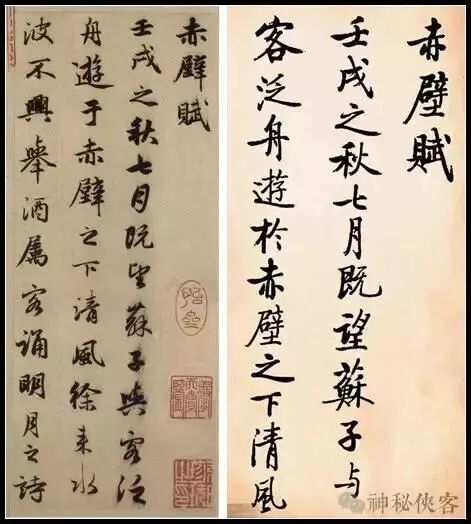 赤壁賦
壬戌之秋七月既望蘇子與客泛
舟遊于赤壁之下清風徐来水
波不興舉酒屬客誦明月之詩
赤壁賦
壬戌之秋七月既望蘇子与
客泛舟遊於赤壁之下清風
神秘侠客